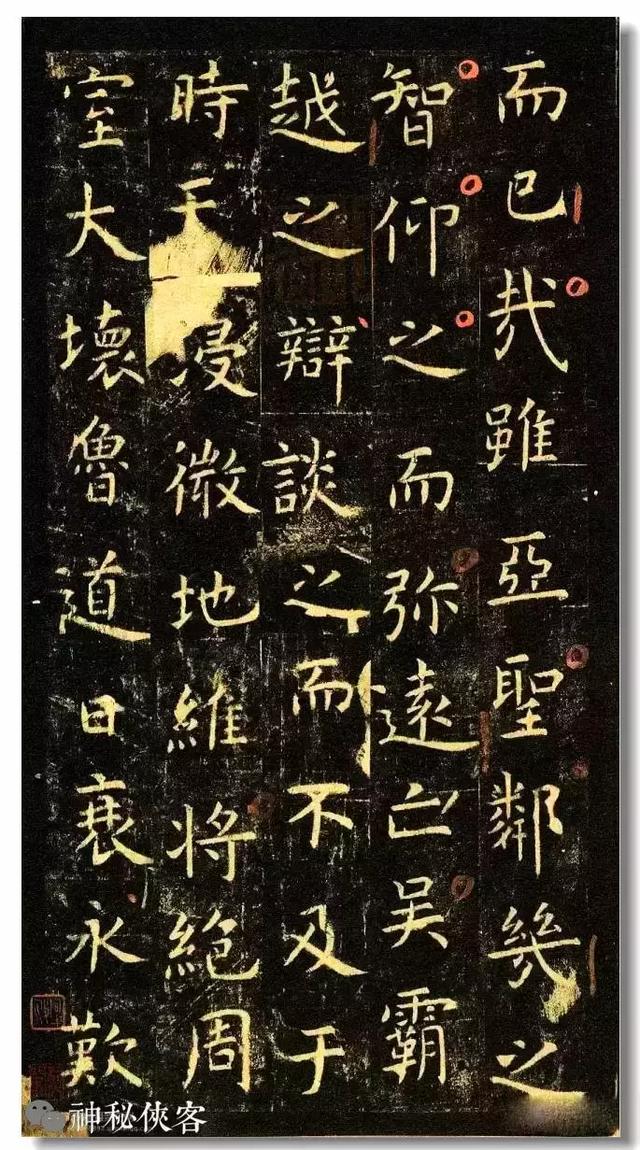 而已哉雖亞聖鄰幾之
智仰之而弥遠亡吴霸
越之辯談之而不及于
時天浸微地維将絶周
室大壞魯道日衰永歎
神秘俠客